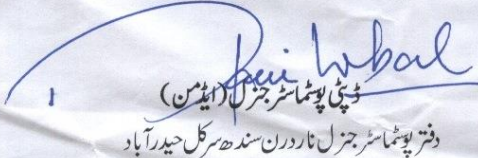 ڈپٹی پوسٹماسٹر جنرل (ایڈمن)
دفتر پوسٹماسٹر جنرل ناردرن سندھ سرکل حیدرآباد